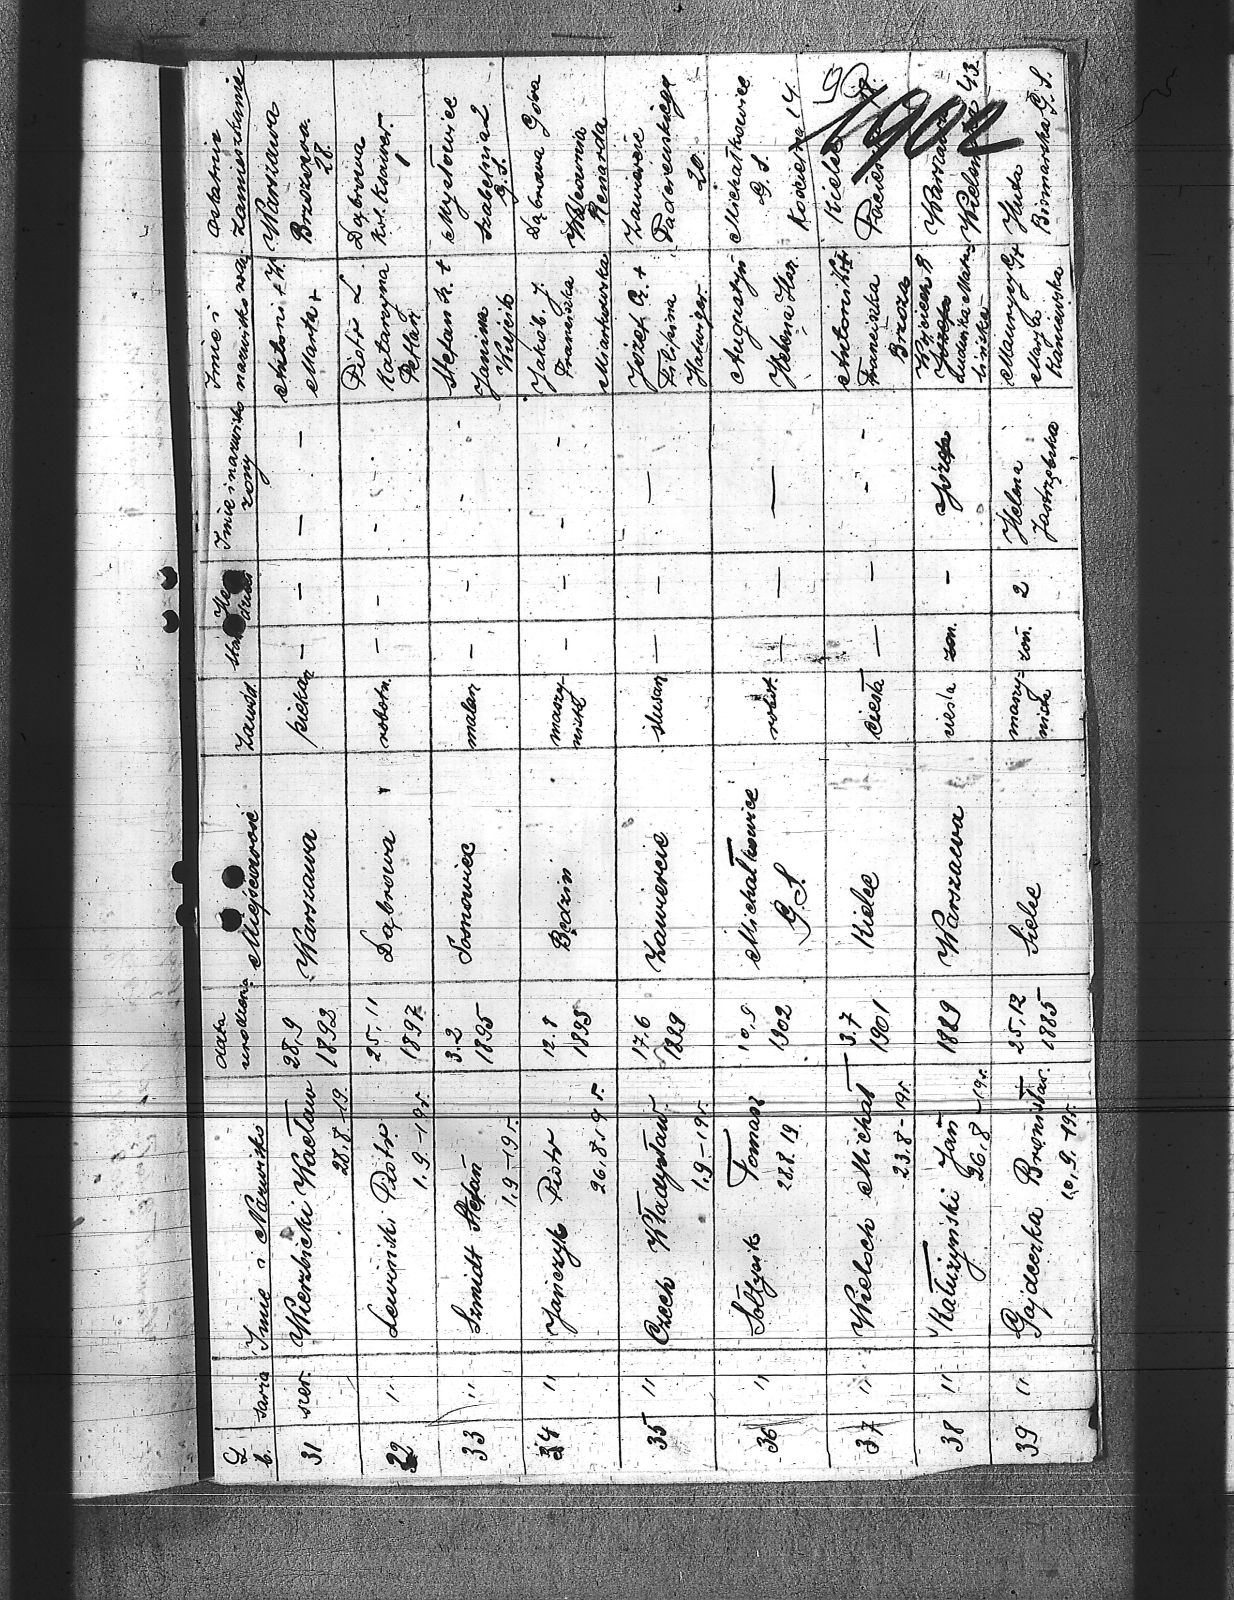 90
1902
L. b.
Imię i Nazwisko
Data urodzenia
Miejscowość
Zawód
Imię i nazwisko żony
Imię i nazwisko
Ostatnie Zamieszkanie
31 szer. Wierzbicki Wacław
28.8-19.
28,9
1892
Warszawa
piekarz
— — — —
Antoni + K.
Marta +
Warszawa
Brzozowa
28.
32 " Lewiński Piotr
1.9-19r.
25,11
1897
Dąbrowa
robotn.
- - - -
Piotr L.
Katarzyna
Dąbrowa
1
33 " Szmidt Stefan
1.9-19r.
3.2
1895
Sosnowiec
malarz
- - - -
Stefan K. +
Janina
Wójcik
Mysłowice
Szabelnia 2
G.S.
34 " Jańczyk Piotr
26.8.19r.
12.8
1898
Będzin
maszy-
nista
- - - -
Jakób J.
Franciszka
Miarkowska
Dąbrowa Góra
Renarda
35 " Czech Władysław
1.9-19r.
17.6
1899
Zawiercie
ślusarz
— — —
Józef Cz. +
Zawiercie
Paderewskiego
20
36 " Sołtysik Tomasz
28.8.19
1902
Michałkowice
G.S.
robot.
— — —
Augustyn
Helena
Michałkowice
G.S.
Kościelna 14
37 " Wieloch Michał
23.8-19r.
3.7
1901
Kielce
cieśla
— — - -
Antoni
Franciszka
Brzoza
Kielce
38 " Kałużyński Jan
26.8-19r.
1889
Warszawa
cieśla
żon.
-
Józefa
Wojciech K
Ludwika
Warszawa
43
39 " Gajdecrka Bronisław
10.9.-19r.
25,12
1885
Sielec
maszy-
nista
żon.
2
Helena
Jastrzębska
Maurycy G+
Marja
Huta
Bismarska G.S.